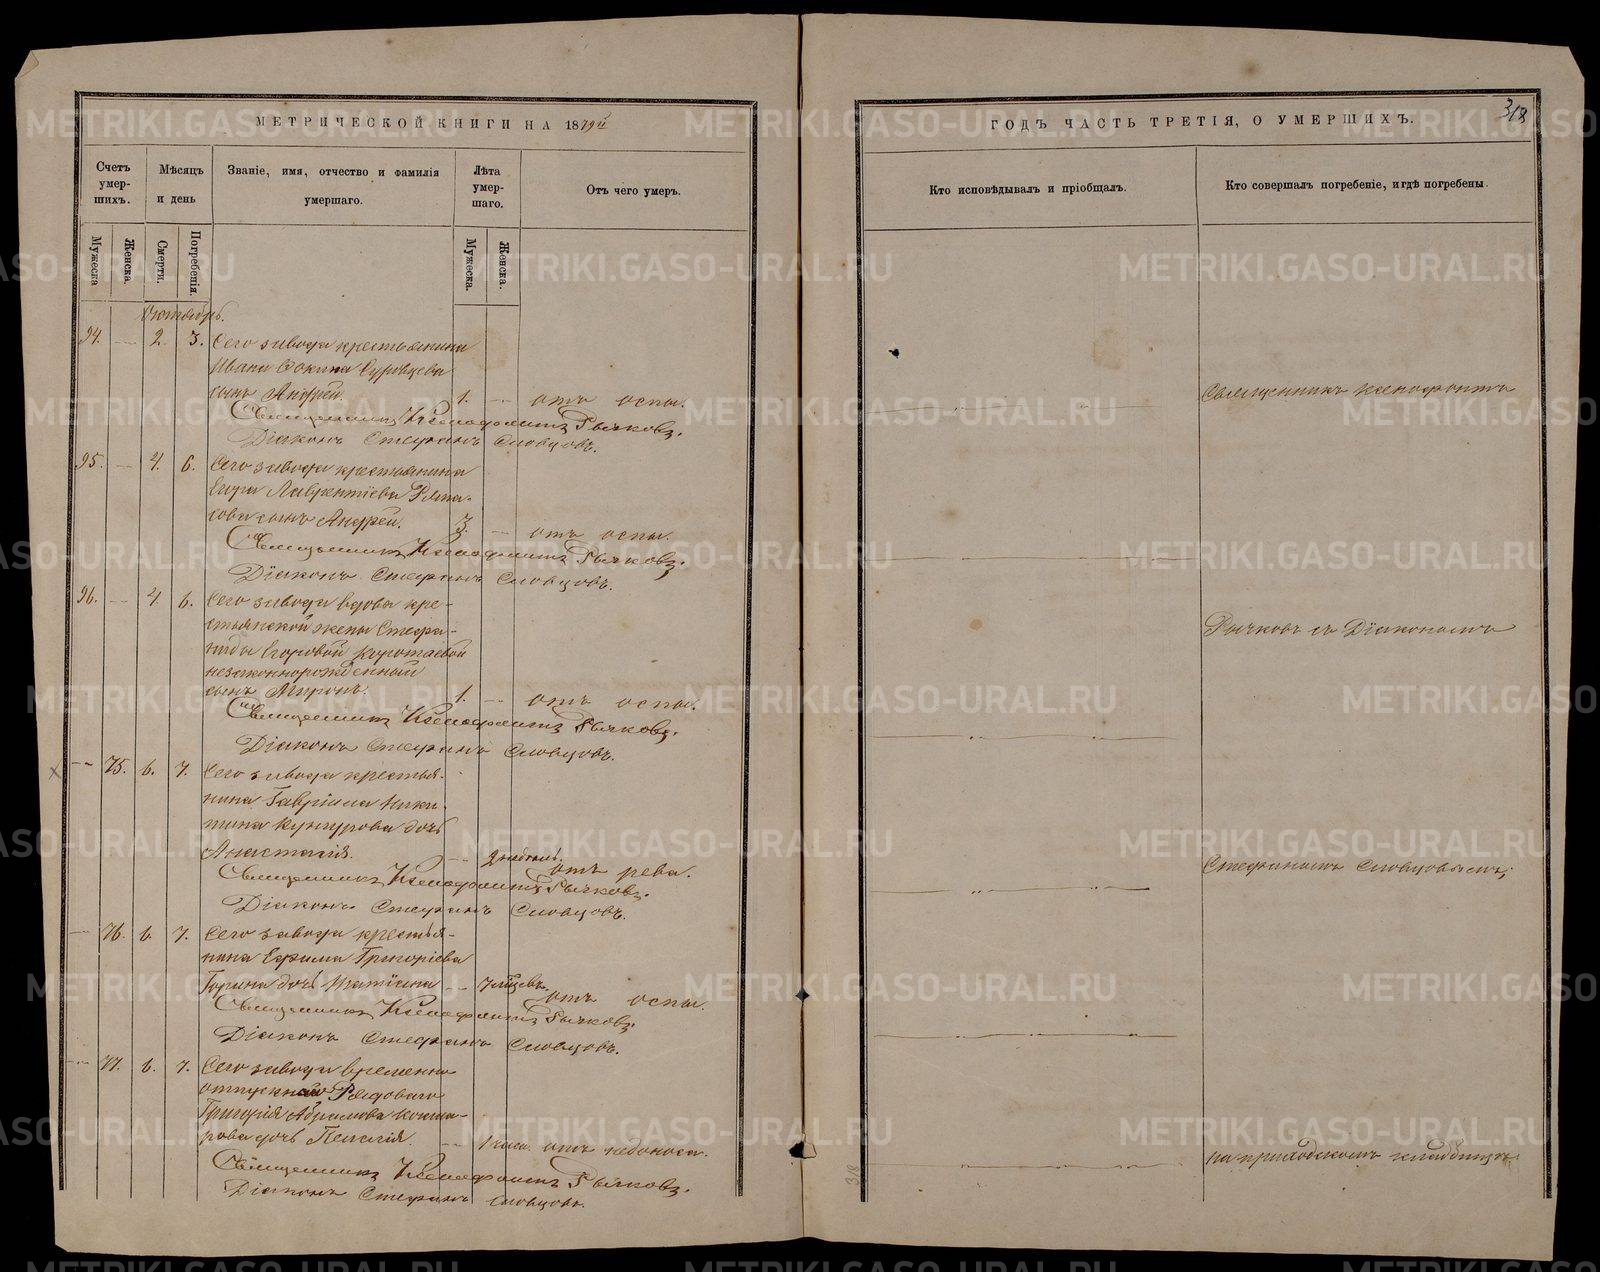 МЕТРИЧЕСКОЙ КНИГИ НА 1879й
ГОДЪ ЧАСТЬ ТРЕТІЯ, О УМЕРШИХЪ.
318
Счетъ умершихъ.
Мѣсяцъ и день
Званіе, имя, отчество и фамилія умершаго.
Лѣта умершаго.
Отъ чего умеръ.
Кто исповѣдывалъ и пріобщалъ.
Кто совершалъ погребеніе, и гдѣ погребены.
Мужеска
Женска.
Смерти.
Погребенія.
Мужеска.
Женска.
Октябрь.
94. — 2. 3. Сего завода крестьянина
Ивана Фокина Суровцева
сынъ Андрей. 1. — отъ оспы.
Священникъ Ксенофонтъ Рычковъ.
Діаконъ Стефанъ Словцовъ.
95. — 4. 6. Сего завода крестьянина
Егора Лаврентіева
сынъ Андрей. 3. — отъ оспы.
Священникъ Ксенофонтъ Рычковъ.
Діаконъ Стефанъ Словцовъ.
96. — 4. 6. Сего завода вдовы кре-
стьянской жены Стефа-
ниды Егоровой Коротаевой
незаконнорожденный
сынъ Миронъ. 1. — отъ оспы.
Священникъ Ксенофонтъ Рычковъ.
Діаконъ Стефанъ Словцовъ.
— 75. 6. 7. Сего завода крестья-
нина Гавріила Ники-
тина Кунгурова дочь
Анастасія. — 2 недѣль. отъ рева.
Священникъ Ксенофонтъ Рычковъ.
Діаконъ Стефанъ Словцовъ.
— 76. 6. 7. Сего завода крестья-
нина Ефима Григоріева
дочь Татіана — 7 мѣсцевъ. отъ оспы.
Священникъ Ксенофонтъ Рычковъ.
Діаконъ Стефанъ Словцовъ.
— 77. 6. 7. Сего завода временно
отпускнаго Рядоваго
Григорія Абрамова
дочь Пелагія. — 1 часа. отъ недоноса.
Священникъ Ксенофонтъ Рычковъ.
Діаконъ Стефанъ Словцовъ.
Священникъ Ксенофонтъ
Рычковъ съ Діакономъ
Стефаномъ Словцовымъ;
на приходскомъ кладбищѣ.
318
METRIKI.GASO-URAL.RU